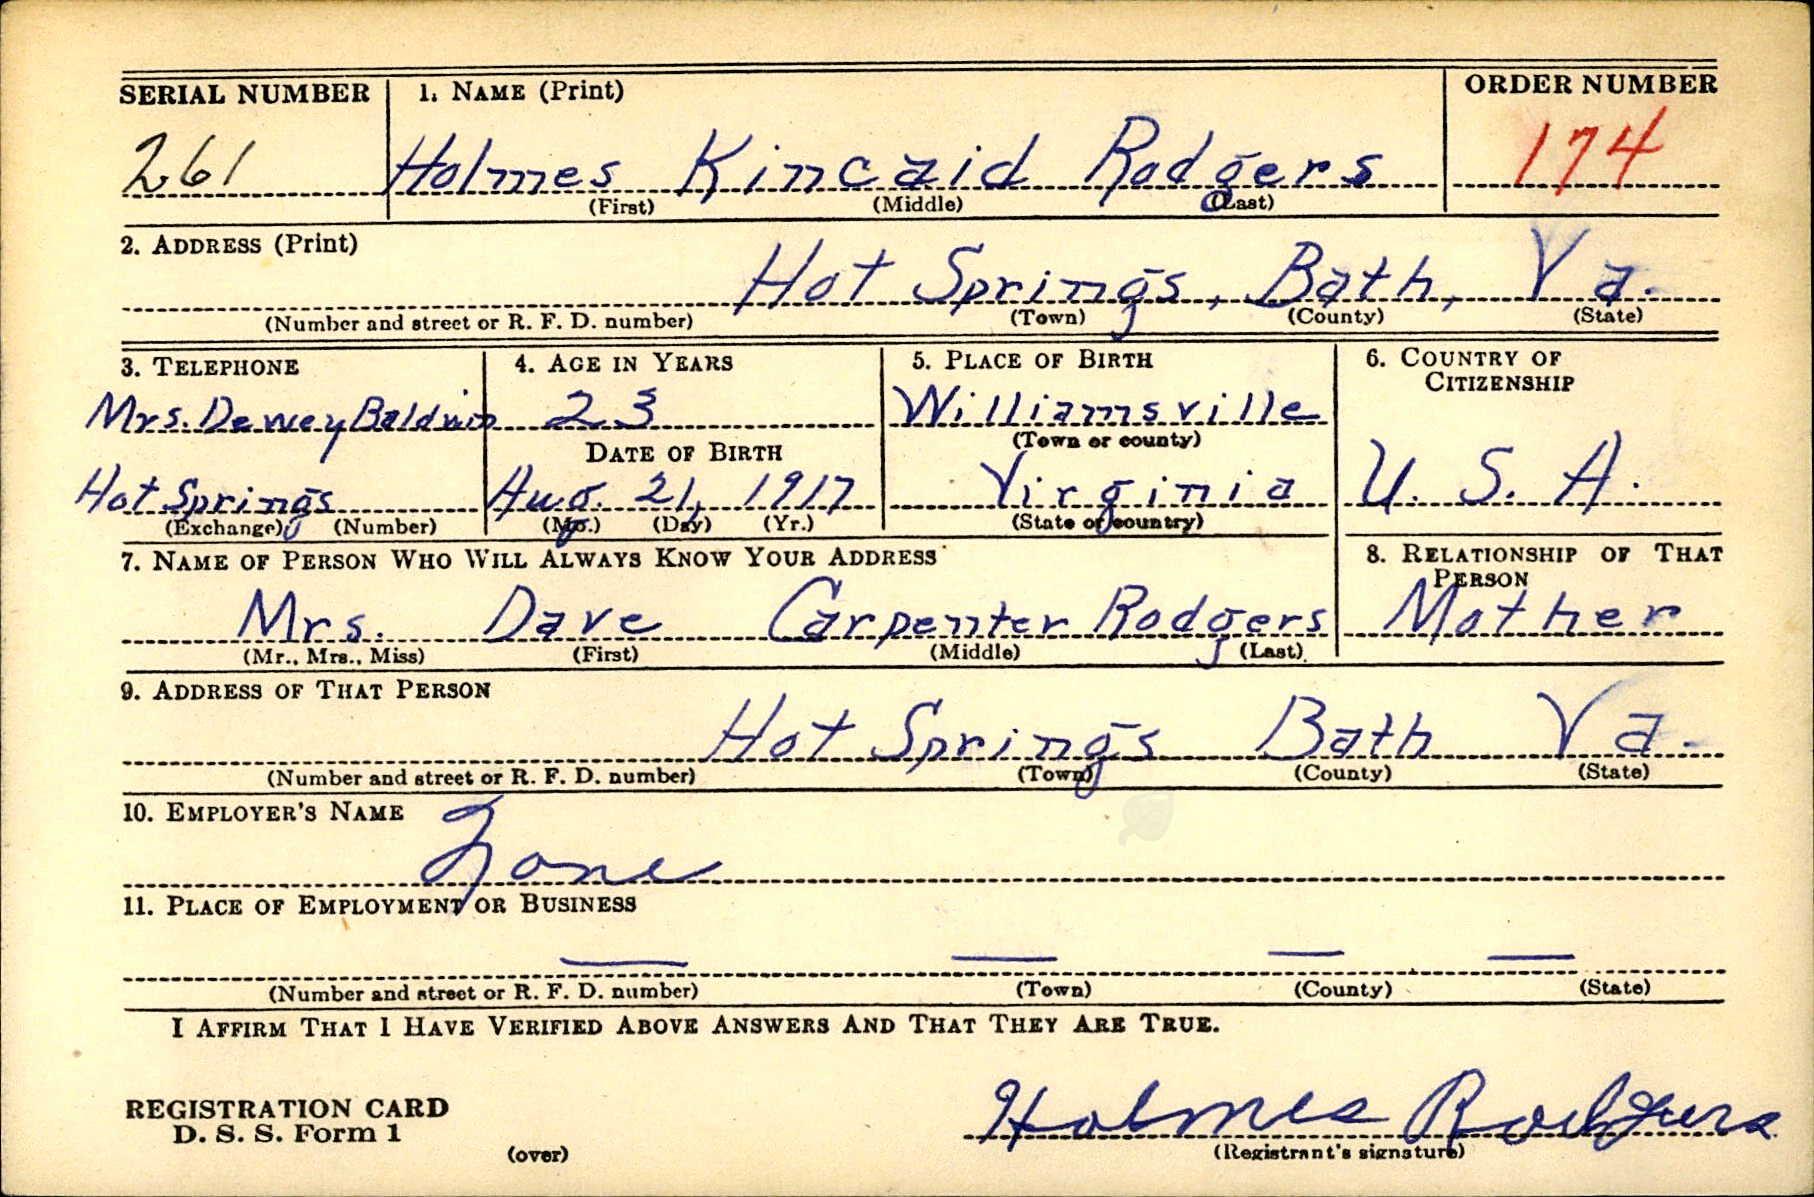 SERIAL NUMBER 1. NAME (Print) ORDER NUMBER
261 Holmes Kincaid Rodgers 174
(First) (Middle) (Last)
2. ADDRESS (Print)
Hot Springs, Bath, Va.
(Number and street or R. F. D. number) (Town) (County) (State)
3. TELEPHONE 4. AGE IN YEARS 5. PLACE OF BIRTH 6. COUNTRY OF
CITIZENSHIP
Mrs. Dewey Baldwin 23 Williamsville
(Town or county)
DATE OF BIRTH
Hot Springs Aug. 21, 1917 Virginia U. S. A.
(Exchange) (Number) (Mo.) (Day) (Yr.) (State or country)
7. NAME OF PERSON WHO WILL ALWAYS KNOW YOUR ADDRESS 8. RELATIONSHIP OF THAT
PERSON
Mrs. Dave Carpenter Rodgers Mother
(Mr., Mrs., Miss) (First) (Middle) (Last)
9. ADDRESS OF THAT PERSON
Hot Springs Bath Va.
(Number and street or R. F. D. number) (Town) (County) (State)
10. EMPLOYER'S NAME
None
11. PLACE OF EMPLOYMENT OR BUSINESS
— — — —
(Number and street or R. F. D. number) (Town) (County) (State)
I AFFIRM THAT I HAVE VERIFIED ABOVE ANSWERS AND THAT THEY ARE TRUE.
REGISTRATION CARD
D. S. S. Form 1
Holmes Rodgers
(over) (Registrant's signature)